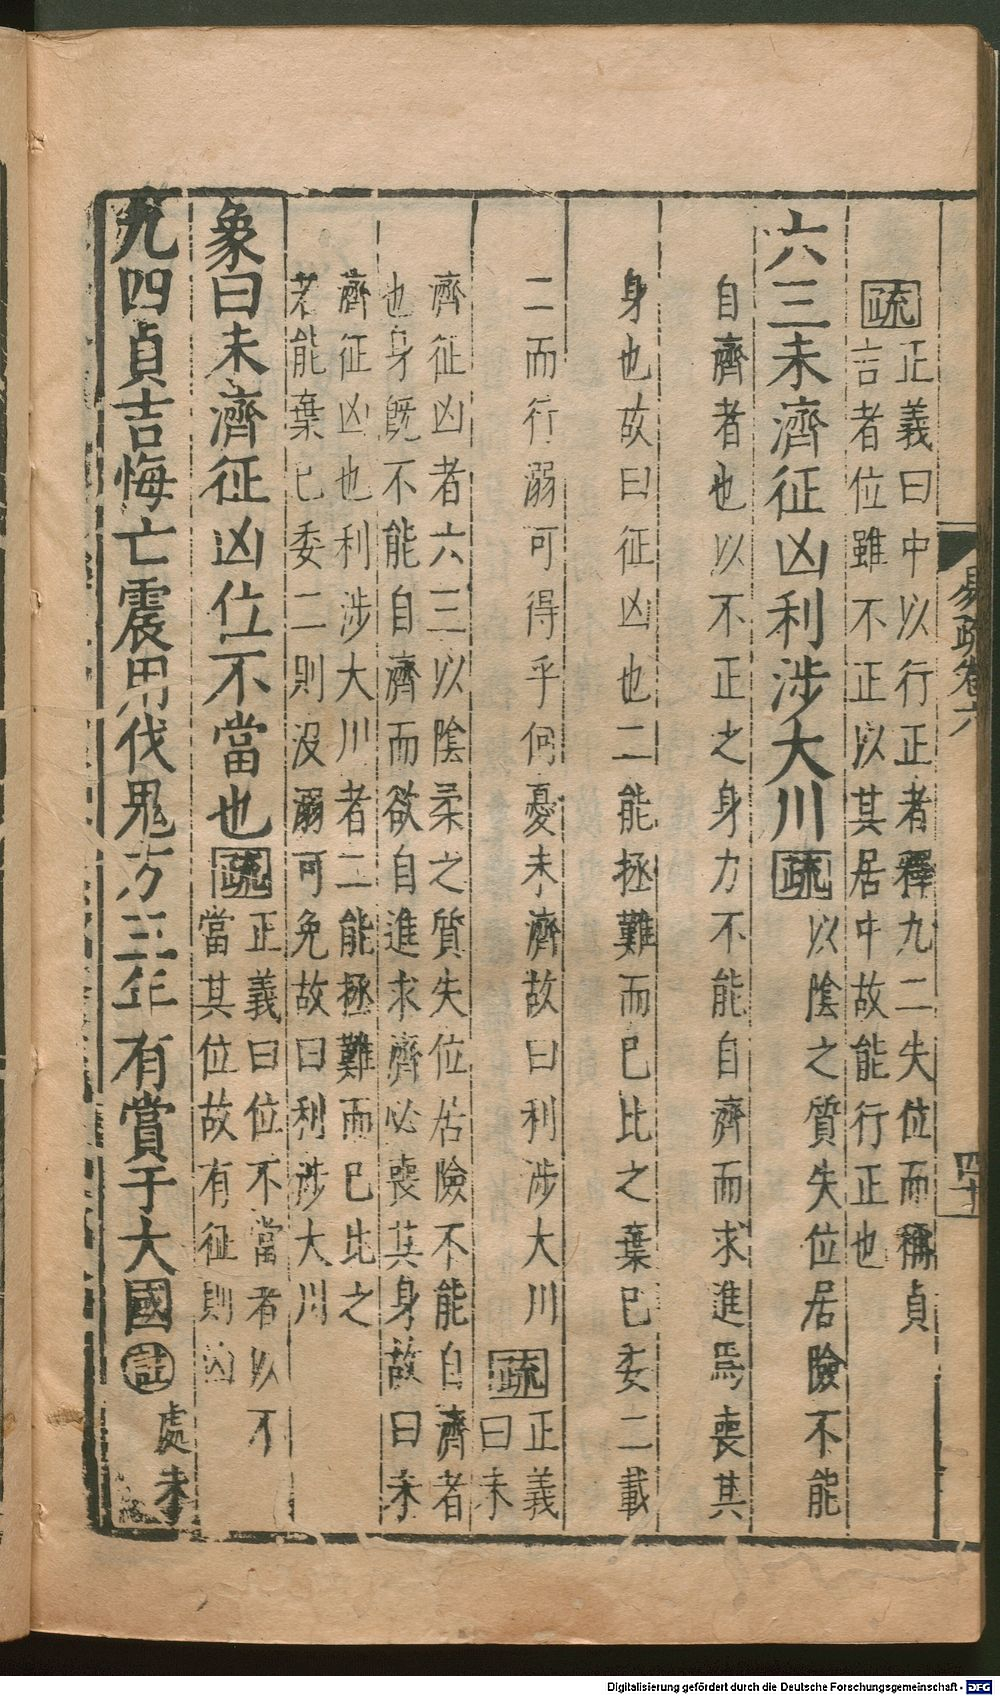 易疏卷六
四十
疏
正義曰中以行正者釋九二失位而稱貞
言者位雖不正以其居中故能行正也
六三未濟征凶利涉大川疏
以陰之質失位居險不能
自濟者也以不正之身力不能自濟而求進焉喪其
身也故曰征凶也二能拯難而已比之棄已委二載
二而行溺可得乎何憂未濟故曰利涉大川疏
正義
曰未
濟征凶者六三以陰柔之質失位居險不能自濟者
也身既不能自濟而欲自進求濟必喪其身故曰未
濟征凶也利涉大川者二能拯難而已比之
若能棄已委二則沒溺可免故曰利涉大川
象曰未濟征凶位不當也疏
正義曰位不當者以不
當其位故有征則凶
九四貞吉悔亡震用伐鬼方三年有賞于大國註
處未
Digitalisierung gefördert durch die Deutsche Forschungsgemeinschaft - DFG